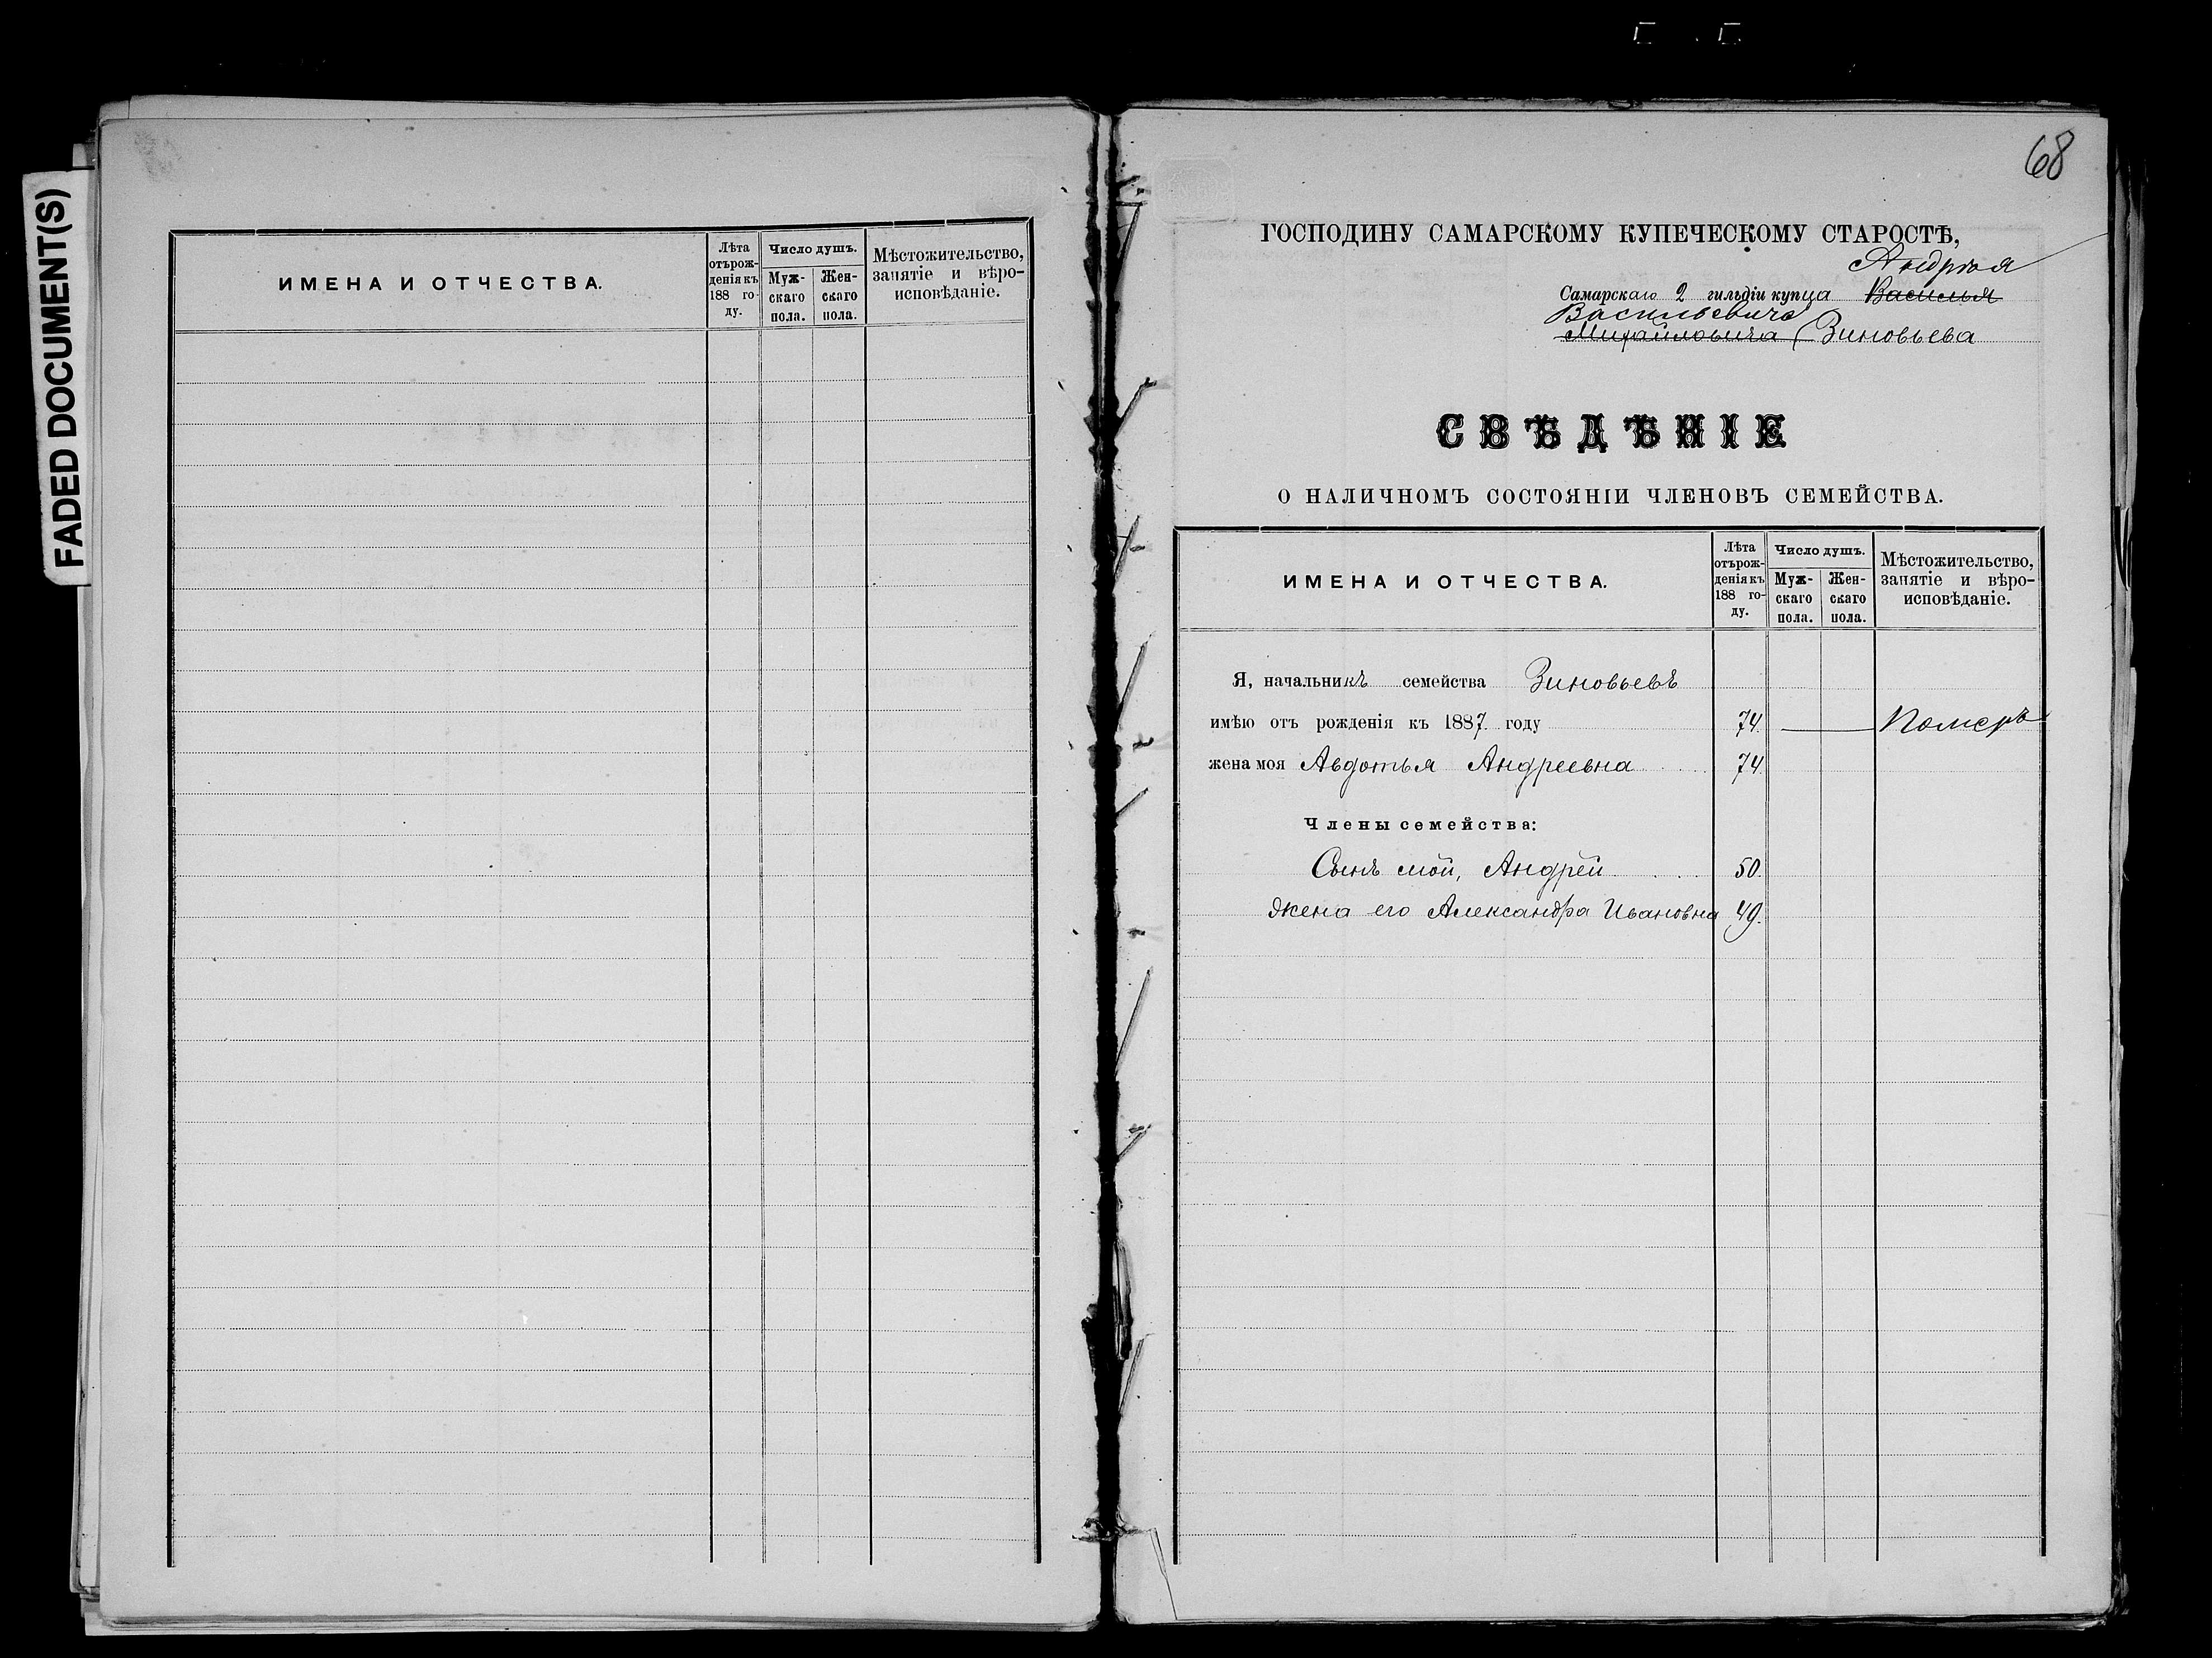 FADED DOCUMENT(S)
ИМЕНА И ОТЧЕСТВА.
Лѣта
отърож-
денiя къ
188 го-
ду.
Число душъ.
Муж-
скаго
пола.
Жен-
скаго
пола.
Мѣстожительство,
занятiе и вѣро-
исповѣданiе.
68
ГОСПОДИНУ САМАРСКОМУ КУПЕЧЕСКОМУ СТАРОСТѢ,
Андрея
Самарскаго 2 гильдiи купца Василья
Васильевича
Михайловича Зиновьева
СВѢДѢНIЕ
О НАЛИЧНОМЪ СОСТОЯНIИ ЧЛЕНОВЪ СЕМЕЙСТВА.
ИМЕНА И ОТЧЕСТВА.
Лѣта
отърож-
денiя къ
188 го-
ду.
Число душъ.
Муж-
скаго
пола.
Жен-
скаго
пола.
Мѣстожительство,
занятiе и вѣро-
исповѣданiе.
Я, начальникъ семейства Зиновьевъ
имѣю отъ рожденiя къ 1887 году 74. Померъ
жена моя Авдотья Андреевна 74.
Члены семейства:
Сынъ мой, Андрей 50.
Жена его Александра Ивановна 49.